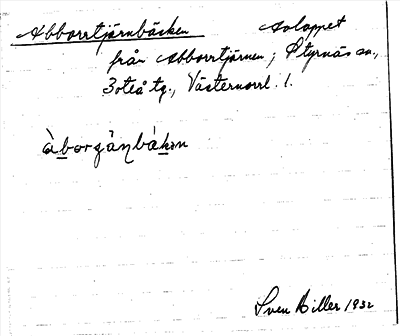 Abborrtjärnbäcken Avloppet
från Abborrtjärnen; Styrnäs sn.,
Boteå tg., Västernorrl. l.
àborgànbákən
Sven Hiller 1932